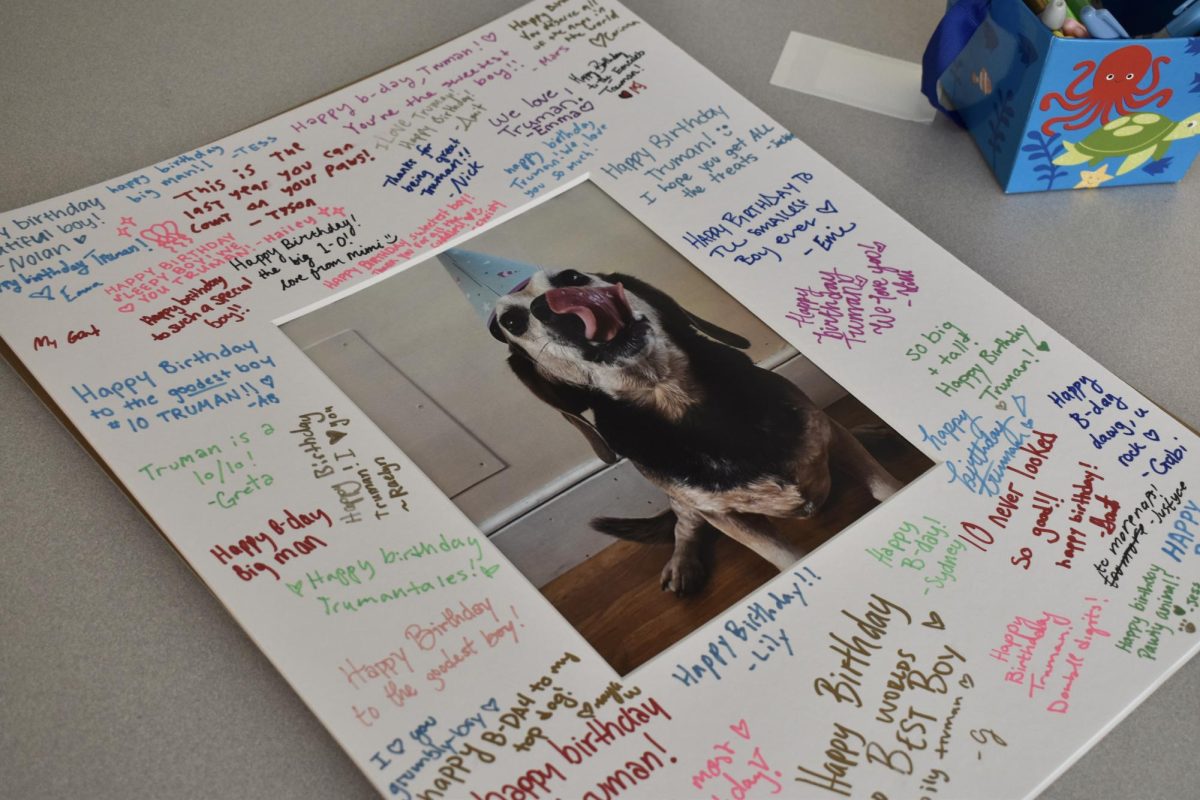 Happy b-day, Truman! ♡
You're the sweetest
boy!!
- Mars
I Love Truman!
Happy Birthday!
We love
Truman!
- Emma ♡
Truman!
happy birthday
big man! - Tess
This is the
last year you can
count on your paws!
- Tyson
Thanks for
being great
Truman!!
- Nick
happy birthday
Truman! We love
you so much!
birthday
boy!
- Nolan ♡
happy birthday Truman!
♡ Emma
HAPPY BIRTHDAY
SLEEPY BOY!!
♡ YOU TRUMAN! - Hailey
Happy Birthday!
the big 1-0!
love from mimi
HAPPY BIRTHDAY sweetest boy!
Happy birthday
to such a special
boy!
My Goat
Happy Birthday
Truman! :)
I hope you get ALL
the treats
HAPPY BIRTHDAY TO
THE smallest
Boy ever ♡
- Eme
Happy
birthday
Truman
We love you!
so big
+ tall!
Happy Birthday
Truman!
Happy
B-day
dawg, u
rock ♡
- Gabi
happy
birthday
truman!
10 never looked
so good!!
happy birthday!
to more naps!
- Justyce
HAPPY
Happy birthday
Party animal!
Happy
B-day!
- Sydney
Happy
Birthday
Truman!
Double digits!
Happy Birthday
to the goodest boy
#10 TRUMAN!! ♡
- AB
Truman is a
10/10!
- Greta
Happy Birthday
Truman! I ♡ you
~ Raelyn
Happy B-day
Big man
♡ Happy birthday
Trumantales! ♡
Happy Birthday
to the goodest boy!
Happy Birthday!!
- Lily
Happy Birthday
BEST BOY
- G
I ♡ you
grumbly-boy ♡
happy B-DAY to my
top dog!
happy birthday
Truman!
most
day!